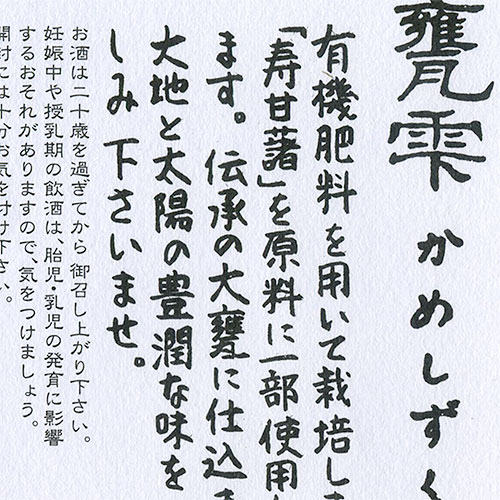 甕雫 かめしずく
有機肥料を用いて栽培しま
「寿甘藷」を原料に一部使用
ます。伝承の大甕に仕込ま
大地と太陽の豊潤な味を
しみ下さいませ。
お酒は二十歳を過ぎてから御召し上がり下さい。
妊娠中や授乳期の飲酒は、胎児・乳児の発育に影響
するおそれがありますので、気をつけましょう。
開封には十分お気を付け下さい。